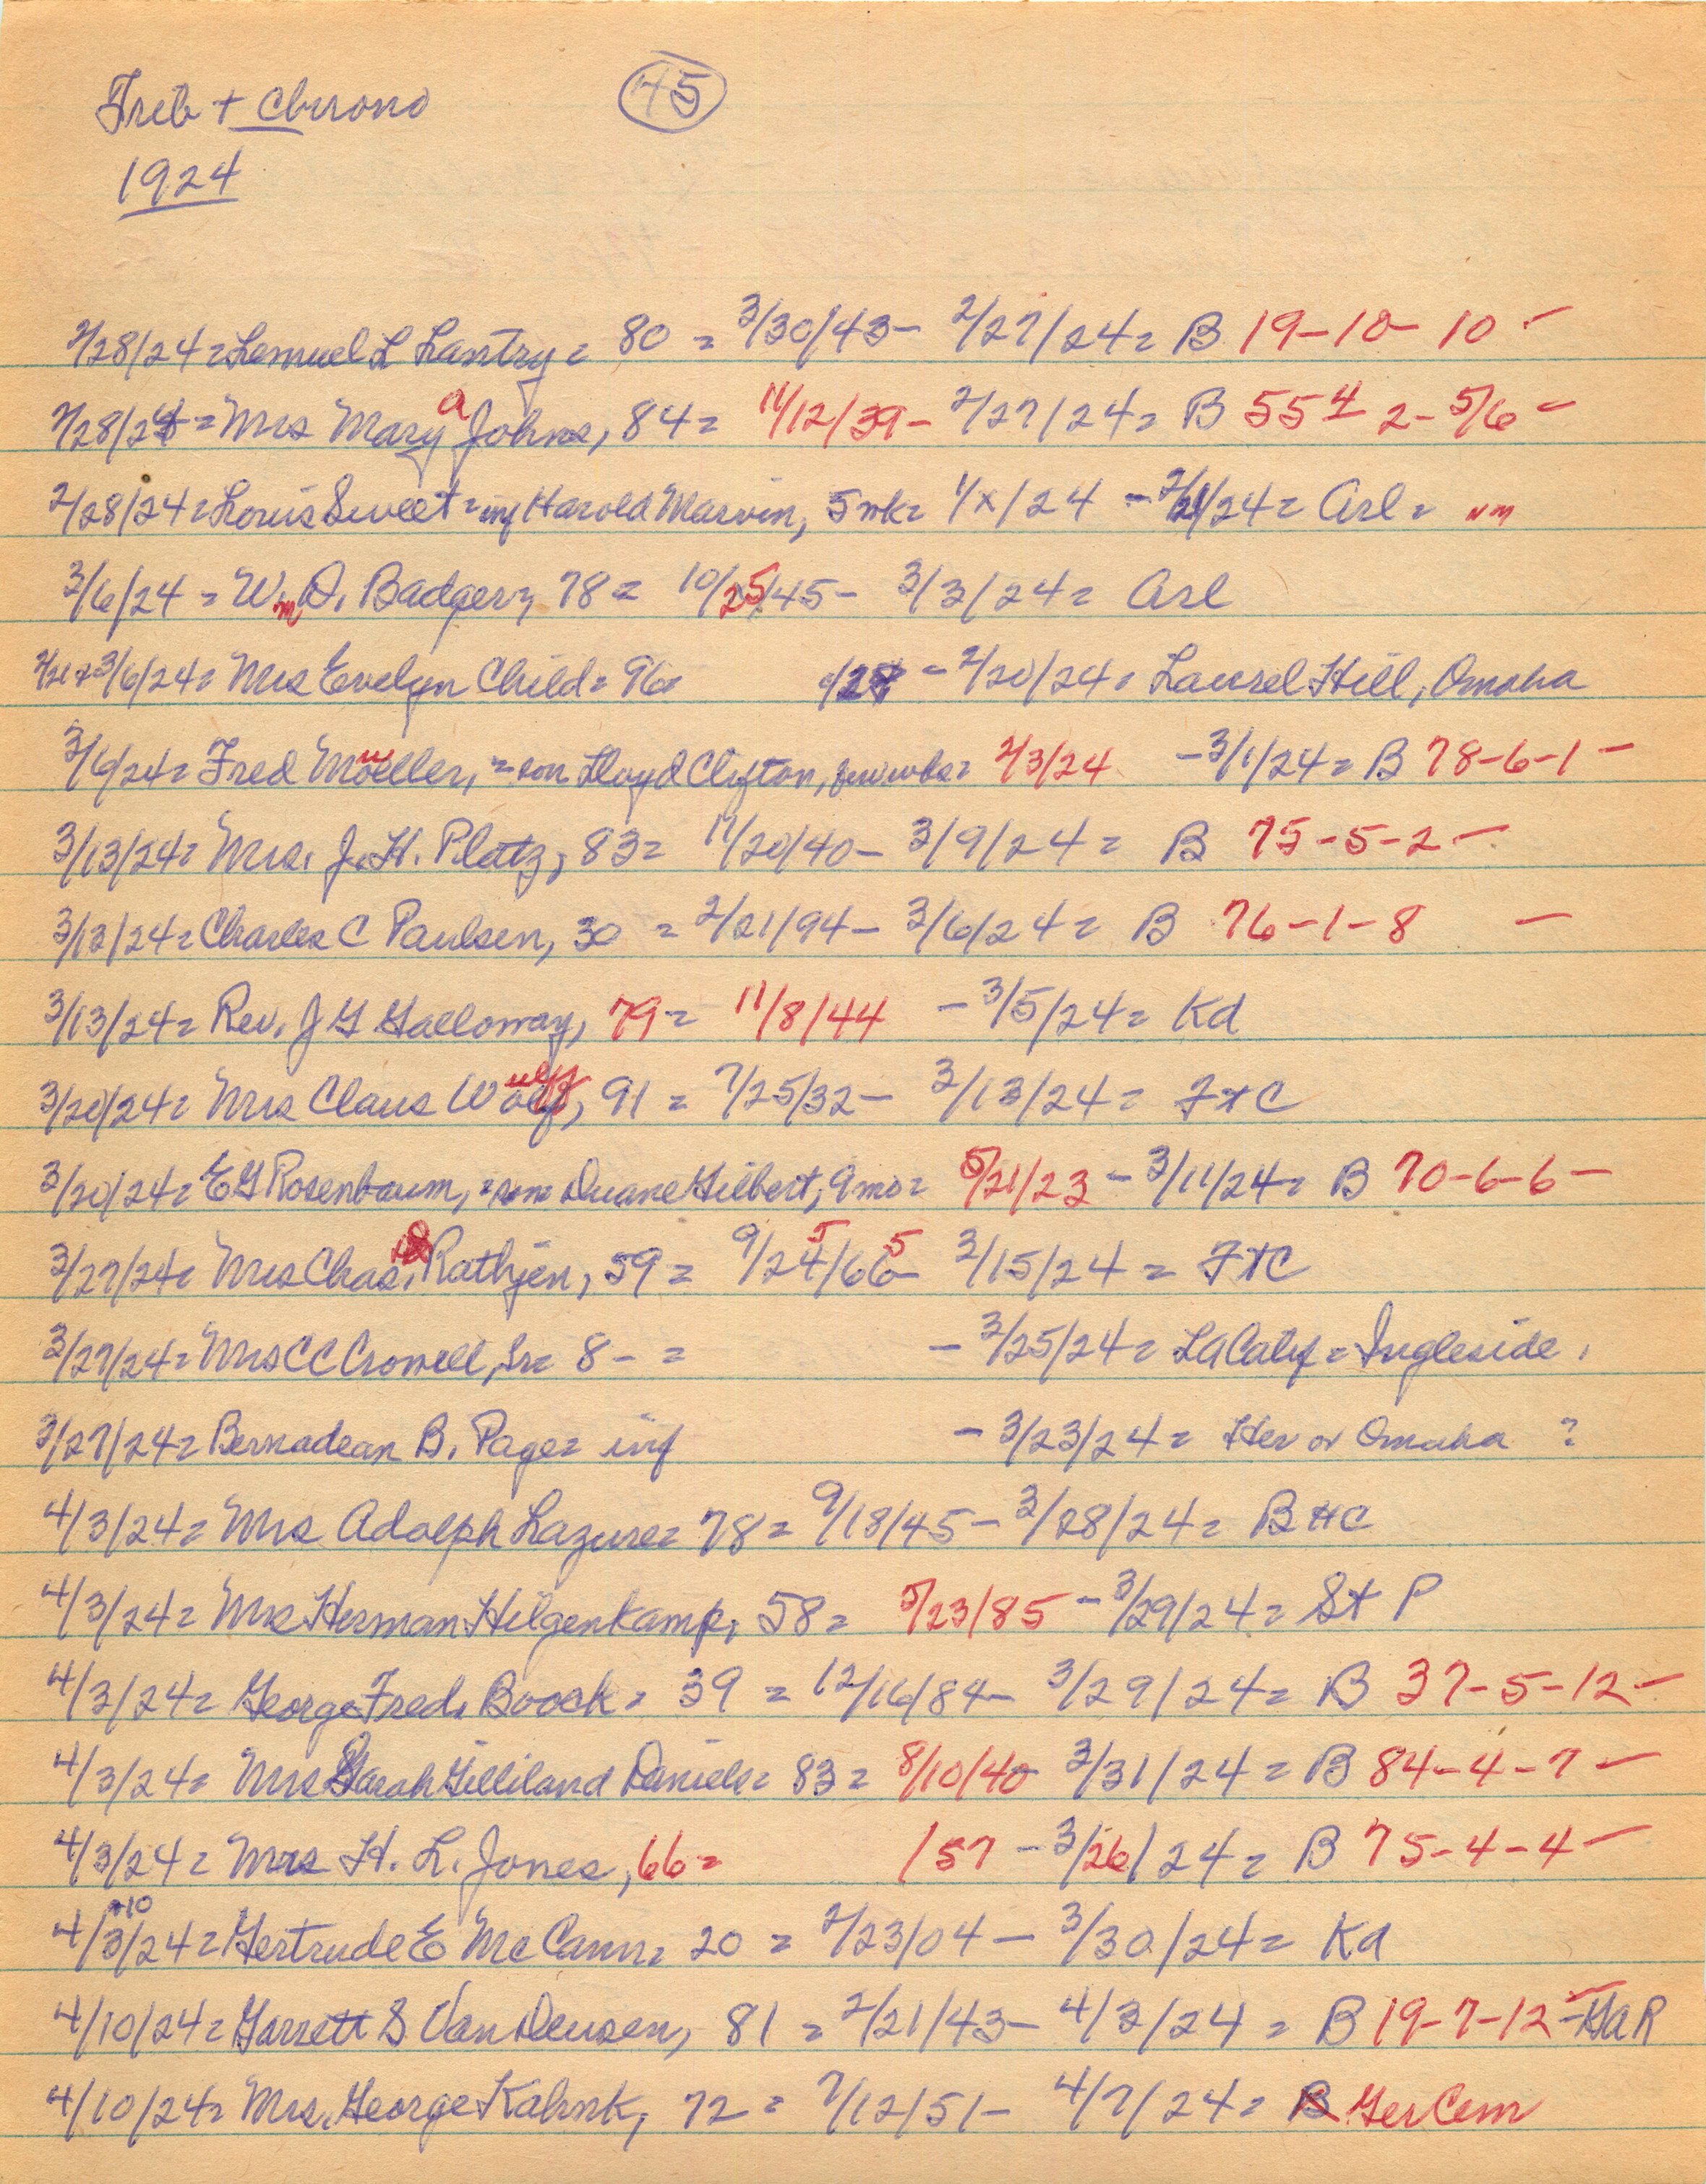 Trib + Chrono 45
1924
2/28/24 = Lemuel L Lantry = 80 = 3/30/43 - 2/27/24 = B 19-10-10 -
2/28/24 = Mrs Mary a Johns, 84 = 11/12/39 - 2/27/24 = B 55 4 2-5/6 -
2/28/24 = Louis Sweet = inf Harold Marvin, 5 wk = 1/x/24 - 2/21/24 = Arl = nm
3/6/24 = Wm D. Badger, 78 = 10/25/45 - 3/3/24 = Arl
3/6/24 = Mrs Evelyn Child = 96 = /28 - 2/20/24 = Laurel Hill, Omaha
3/6/24 = Fred Moeller, = son Lloyd Clifton, few wks = 2/3/24 - 3/1/24 = B 78-6-1 -
3/13/24 = Mrs. J. H. Platz, 83 = 11/20/40 - 3/9/24 = B 75-5-2 -
3/13/24 = Charles C Paulsen, 30 = 2/21/94 - 3/6/24 = B 76-1-8 -
3/13/24 = Rev. J G Galloway, 79 = 11/8/44 - 3/5/24 = Kd
3/20/24 = Mrs Claus Wulf, 91 = 7/25/32 - 3/13/24 = FtC
3/20/24 = E G Rosenbaum, = son Duane Gilbert, 9 mo = 5/21/23 - 3/11/24 = B 70-6-6 -
3/27/24 = Mrs Chas. Rathjen, 59 = 9/24 5/66 5 - 3/15/24 = FtC
3/27/24 = Mrs C C Crowell, Sr = 8- = - 3/25/24 = LA Calif = Ingleside.
3/27/24 = Bernadean B. Page = inf - 3/23/24 = Her or Omaha ?
4/3/24 = Mrs Adolph Lazure = 78 = 9/18/45 - 3/28/24 = B HC
4/3/24 = Mrs Herman Hilgenkamp, 58 = 5/23/85 - 3/29/24 = St P
4/3/24 = George Fred. Boock = 39 = 12/16/84 - 3/29/24 = B 37-5-12 -
4/3/24 = Mrs Sarah Gilliland Daniels = 83 = 8/10/40 - 3/31/24 = B 84-4-7 -
4/3/24 = Mrs H. L. Jones, 66 = /57 - 3/26/24 = B 75-4-4 -
4/3+10/24 = Gertrude E McCann = 20 = 2/23/04 - 3/30/24 = Kd
4/10/24 = Garrett S Van Deusen, 81 = 2/21/43 - 4/3/24 = B 19-7-12 - GAR
4/10/24 = Mrs. George Kahnk, 72 = 7/12/51 - 4/7/24 = B Ger Cem